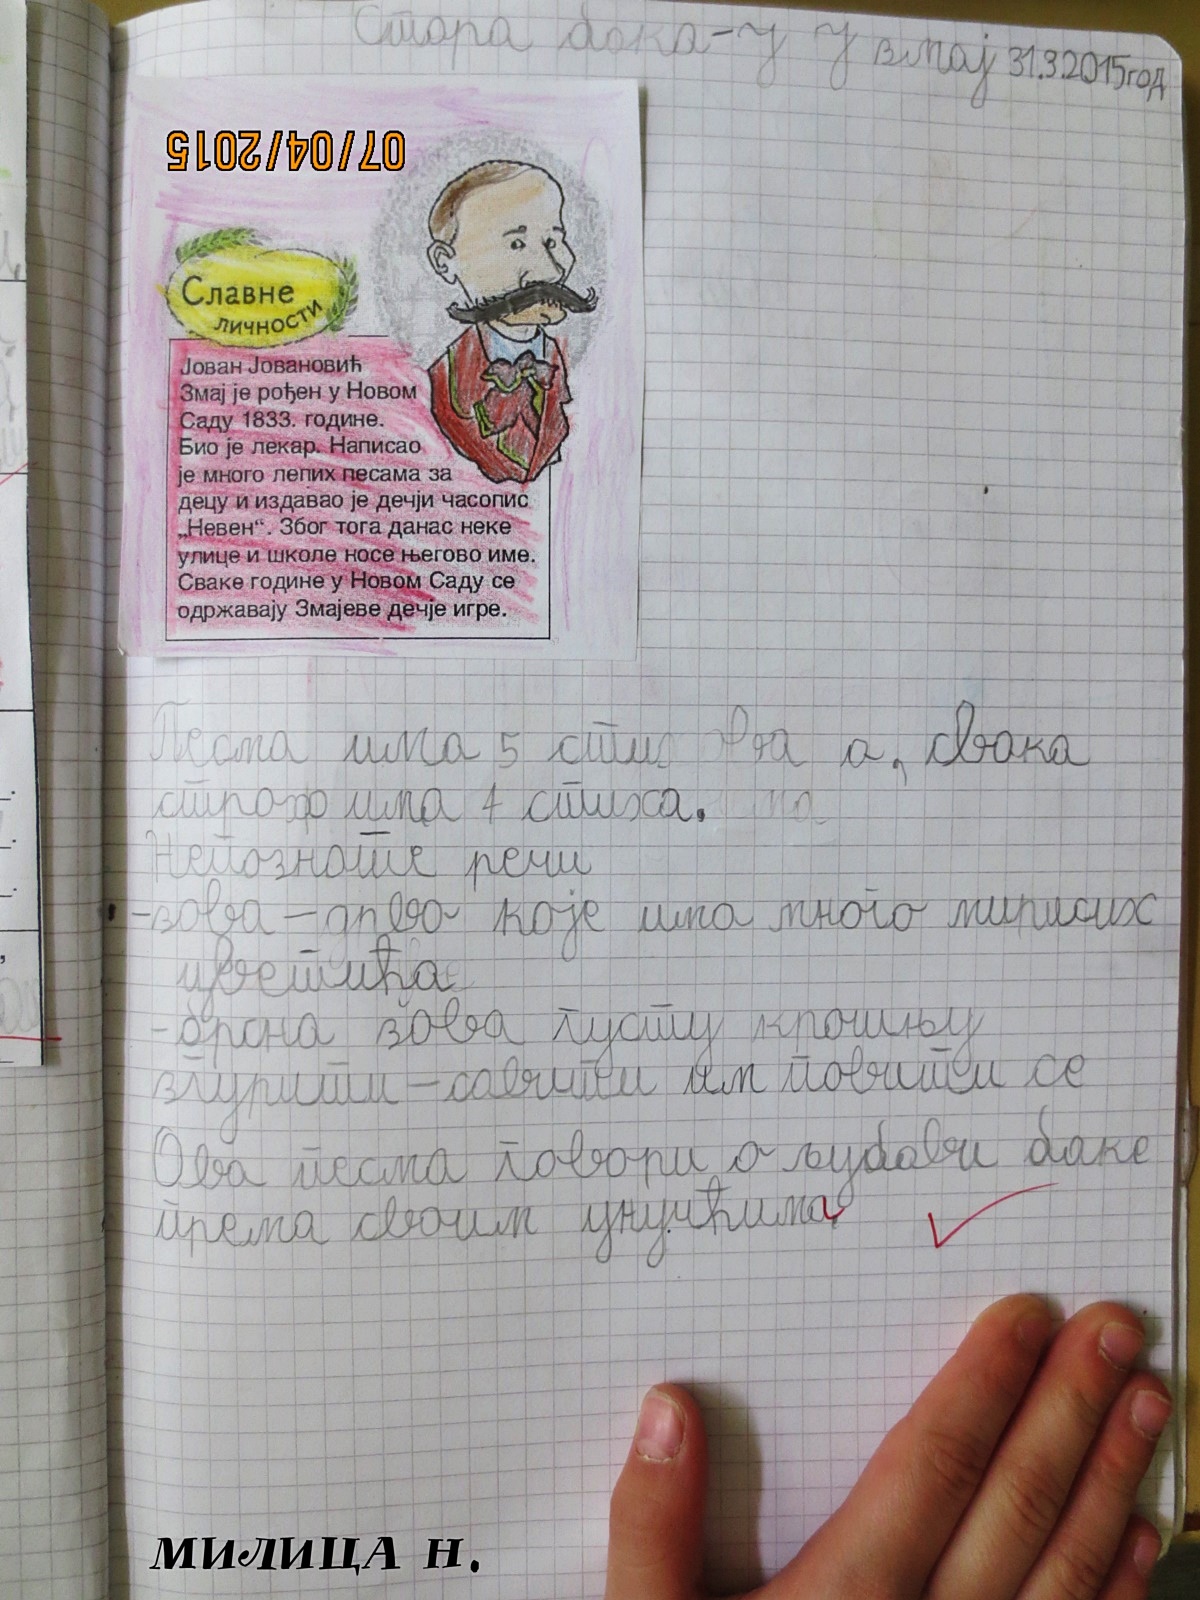 Стара бака-Ј Ј Змај 31.3.2015год
07/04/2015
Славне
личности
Јован Јовановић
Змај је рођен у Новом
Саду 1833. године.
Био је лекар. Написао
је много лепих песама за
децу и издавао је дечји часопис
„Невен“. Због тога данас неке
улице и школе носе његово име.
Сваке године у Новом Саду се
одржавају Змајеве дечје игре.
Песма има 5 а, свака
строф има 4 стиха.
Непознате речи
-зова – дрво које има много
цветића
- зова густу крошњу
згурити – савити им повити се
Ова песма говори о љубави баке
према своим унучћима
МИЛИЦА Н.